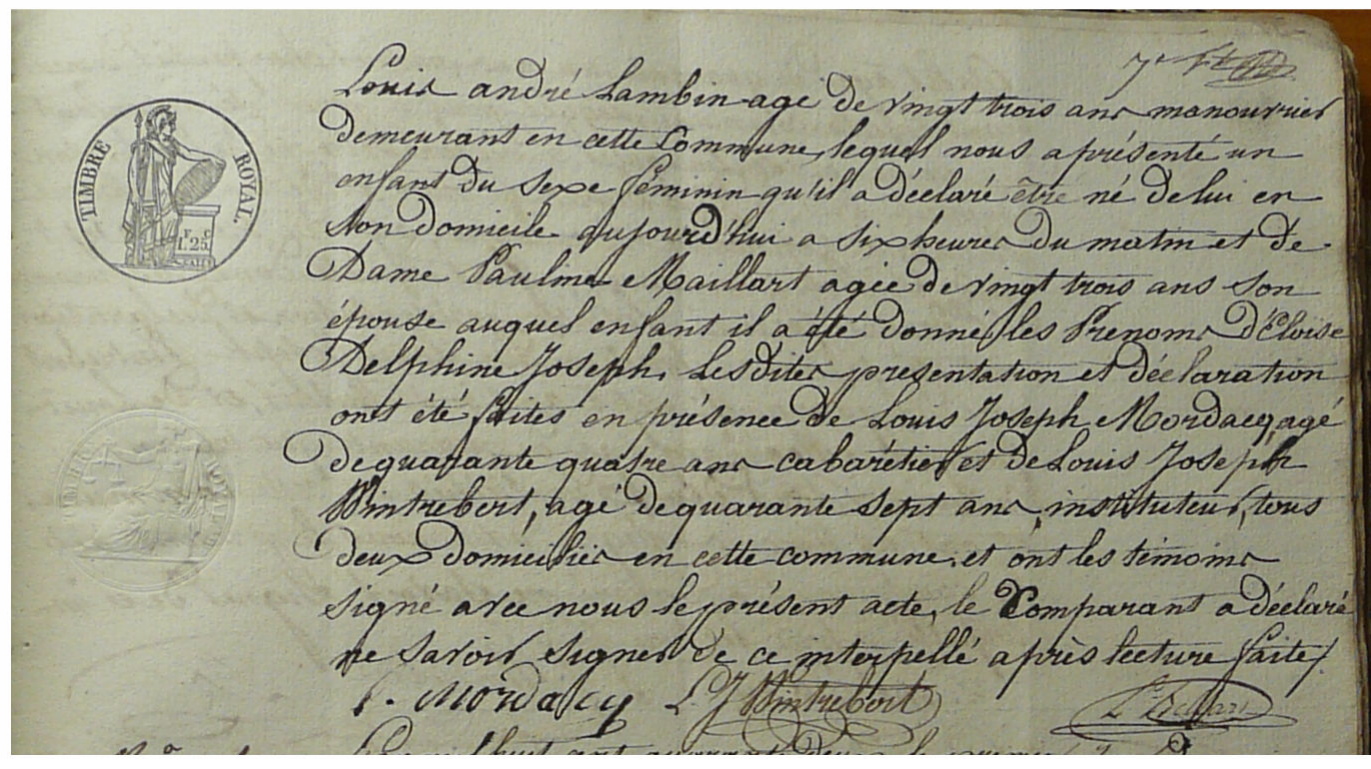 7e
Louis andré Lambin agé de vingt trois ans manouvrier
demeurant en cette Commune, lequel nous a présenté un
enfant du sexe féminin qu'il a déclaré être né de lui en
son Domicile aujourd'hui a six heures du matin et de
Dame Pauline Maillart agée de vingt trois ans son
épouse auquel enfant il a été donné les Prenoms d'Eloïse
Delphine Joseph, Lesdites presentation et déclaration
ont été faites en présence de Louis Joseph Mordacq, agé
de quarante quatre ans cabarétier et de Louis Joseph
Wintrebert, agé de quarante sept ans, instituteur, tous
deux domiciliés en cette commune, et ont les témoins
signé avec nous le présent acte, le Comparant a déclaré
ne savoir signer de ce interpellé après lecture faite/.
Mordacq L J Wintrebert
TIMBRE ROYAL.
F. C
1. 25
mil huit cent quarante deux le premier